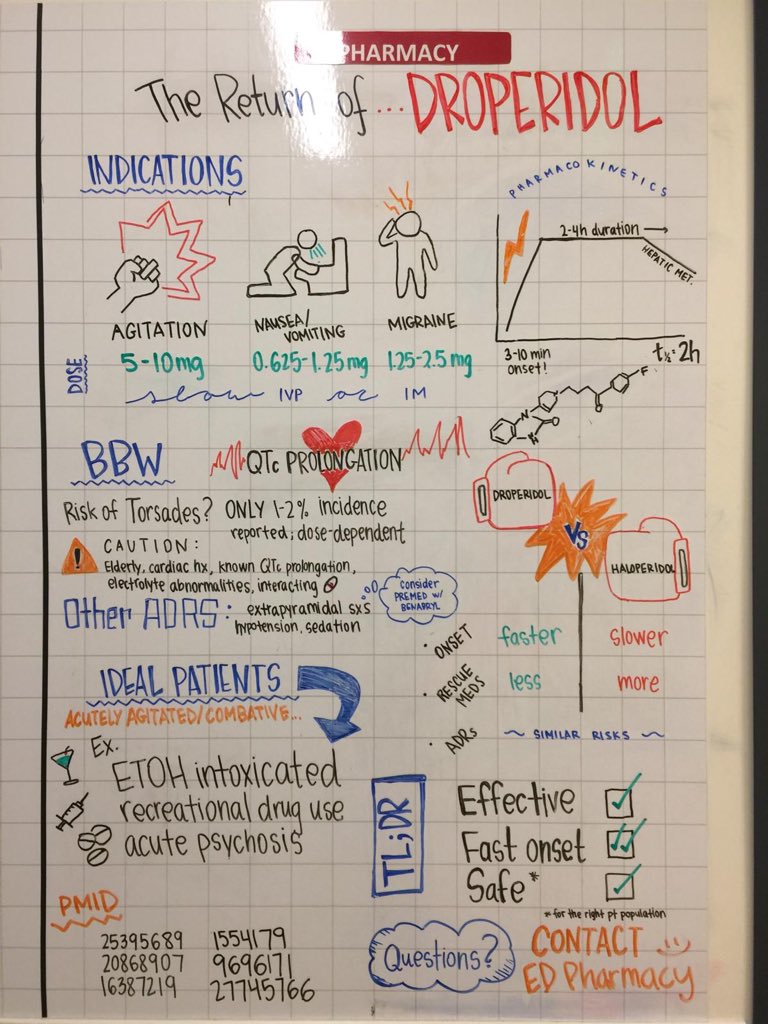 PHARMACY
The Return of ... DROPERIDOL
INDICATIONS
AGITATION
NAUSEA/
VOMITING
MIGRAINE
DOSE
5-10mg
0.625-1.25mg
1.25-2.5mg
slow IVP or IM
PHARMACOKINETICS
2-4h duration →
HEPATIC MET.
3-10 min
onset!
t½=2h
F
O
N
N
O
H
BBW
QTc PROLONGATION
Risk of Torsades? ONLY 1-2% incidence
reported; dose-dependent
! CAUTION:
Elderly, cardiac hx, known QTc prolongation,
electrolyte abnormalities, interacting
Other ADRS: extrapyramidal sxs
hypotension, sedation
Consider
PREMED W/
BENADRYL
DROPERIDOL
VS
HALOPERIDOL
• ONSET faster slower
• RESCUE
MEDS less more
• ADRs ~ SIMILAR RISKS ~
IDEAL PATIENTS
ACUTELY AGITATED/COMBATIVE...
Ex.
ETOH intoxicated
recreational drug use
acute psychosis
TL;DR
Effective
Fast onset
Safe*
* for the right pt population
PMID
25395689 1554179
20868907 9696171
16387219 27745766
Questions?
CONTACT
ED Pharmacy